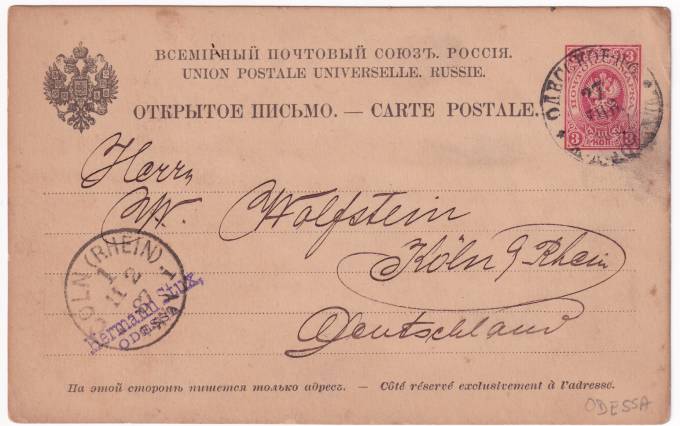 ВСЕМІРНЫЙ ПОЧТОВЫЙ СОЮЗЪ. РОССІЯ.
UNION POSTALE UNIVERSELLE. RUSSIE.
ОТКРЫТОЕ ПИСЬМО. — CARTE POSTALE.
3 3
3 3
27
Herrn
W. Wolfstein
Köln a/Rhein
Deutschland
CÖLN (RHEIN)
1
11 2
87
Hermann Stux,
ODESSA
На этой сторонѣ пишется только адресъ. — Côté réservé exclusivement à l'adresse.
ODESSA